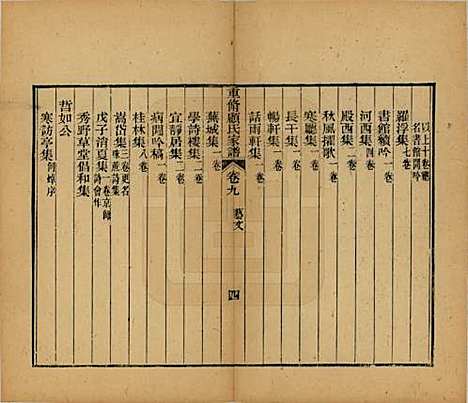 以上十卷總
名書館閒吟
羅浮集七卷
書館續吟一卷
河西集四卷
殿西集二卷
秋風擢歌一卷
寒廳集一卷
長干集一卷
暢軒集一卷
話雨軒集一卷
重脩顧氏家譜 卷九 藝文 四
蕪城集一卷
學詩樓集一卷
宜靜居集一卷
病閒吟稿一卷
桂林集八卷
嵩岱集三卷更名
戊子消夏集一卷京師
秀野草堂倡和集
哲如公
寒訪亭集